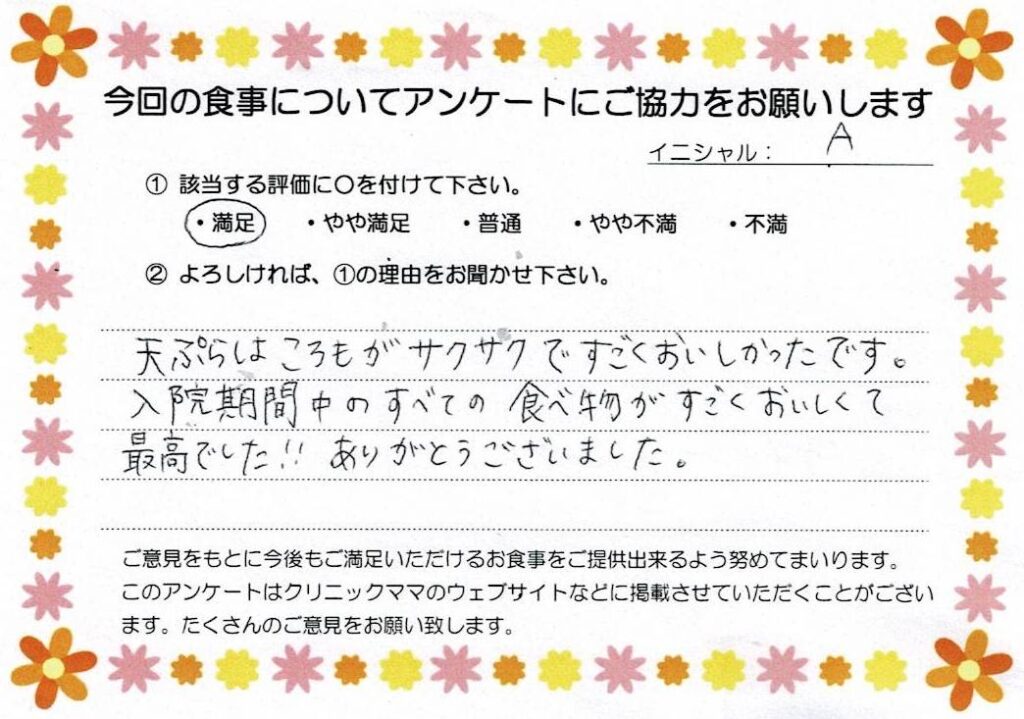 今回の食事についてアンケートにご協力をお願いします
イニシャル： A
① 該当する評価に〇を付けて下さい。
・満足 ・やや満足 ・普通 ・やや不満 ・不満
② よろしければ、①の理由をお聞かせ下さい。
天ぷらはころもがサクサクですごくおいしかったです。
入院期間中のすべての食べ物がすごくおいしくて
最高でした!! ありがとうございました。
ご意見をもとに今後もご満足いただけるお食事をご提供出来るよう努めてまいります。
このアンケートはクリニックママのウェブサイトなどに掲載させていただくことがござい
ます。たくさんのご意見をお願い致します。